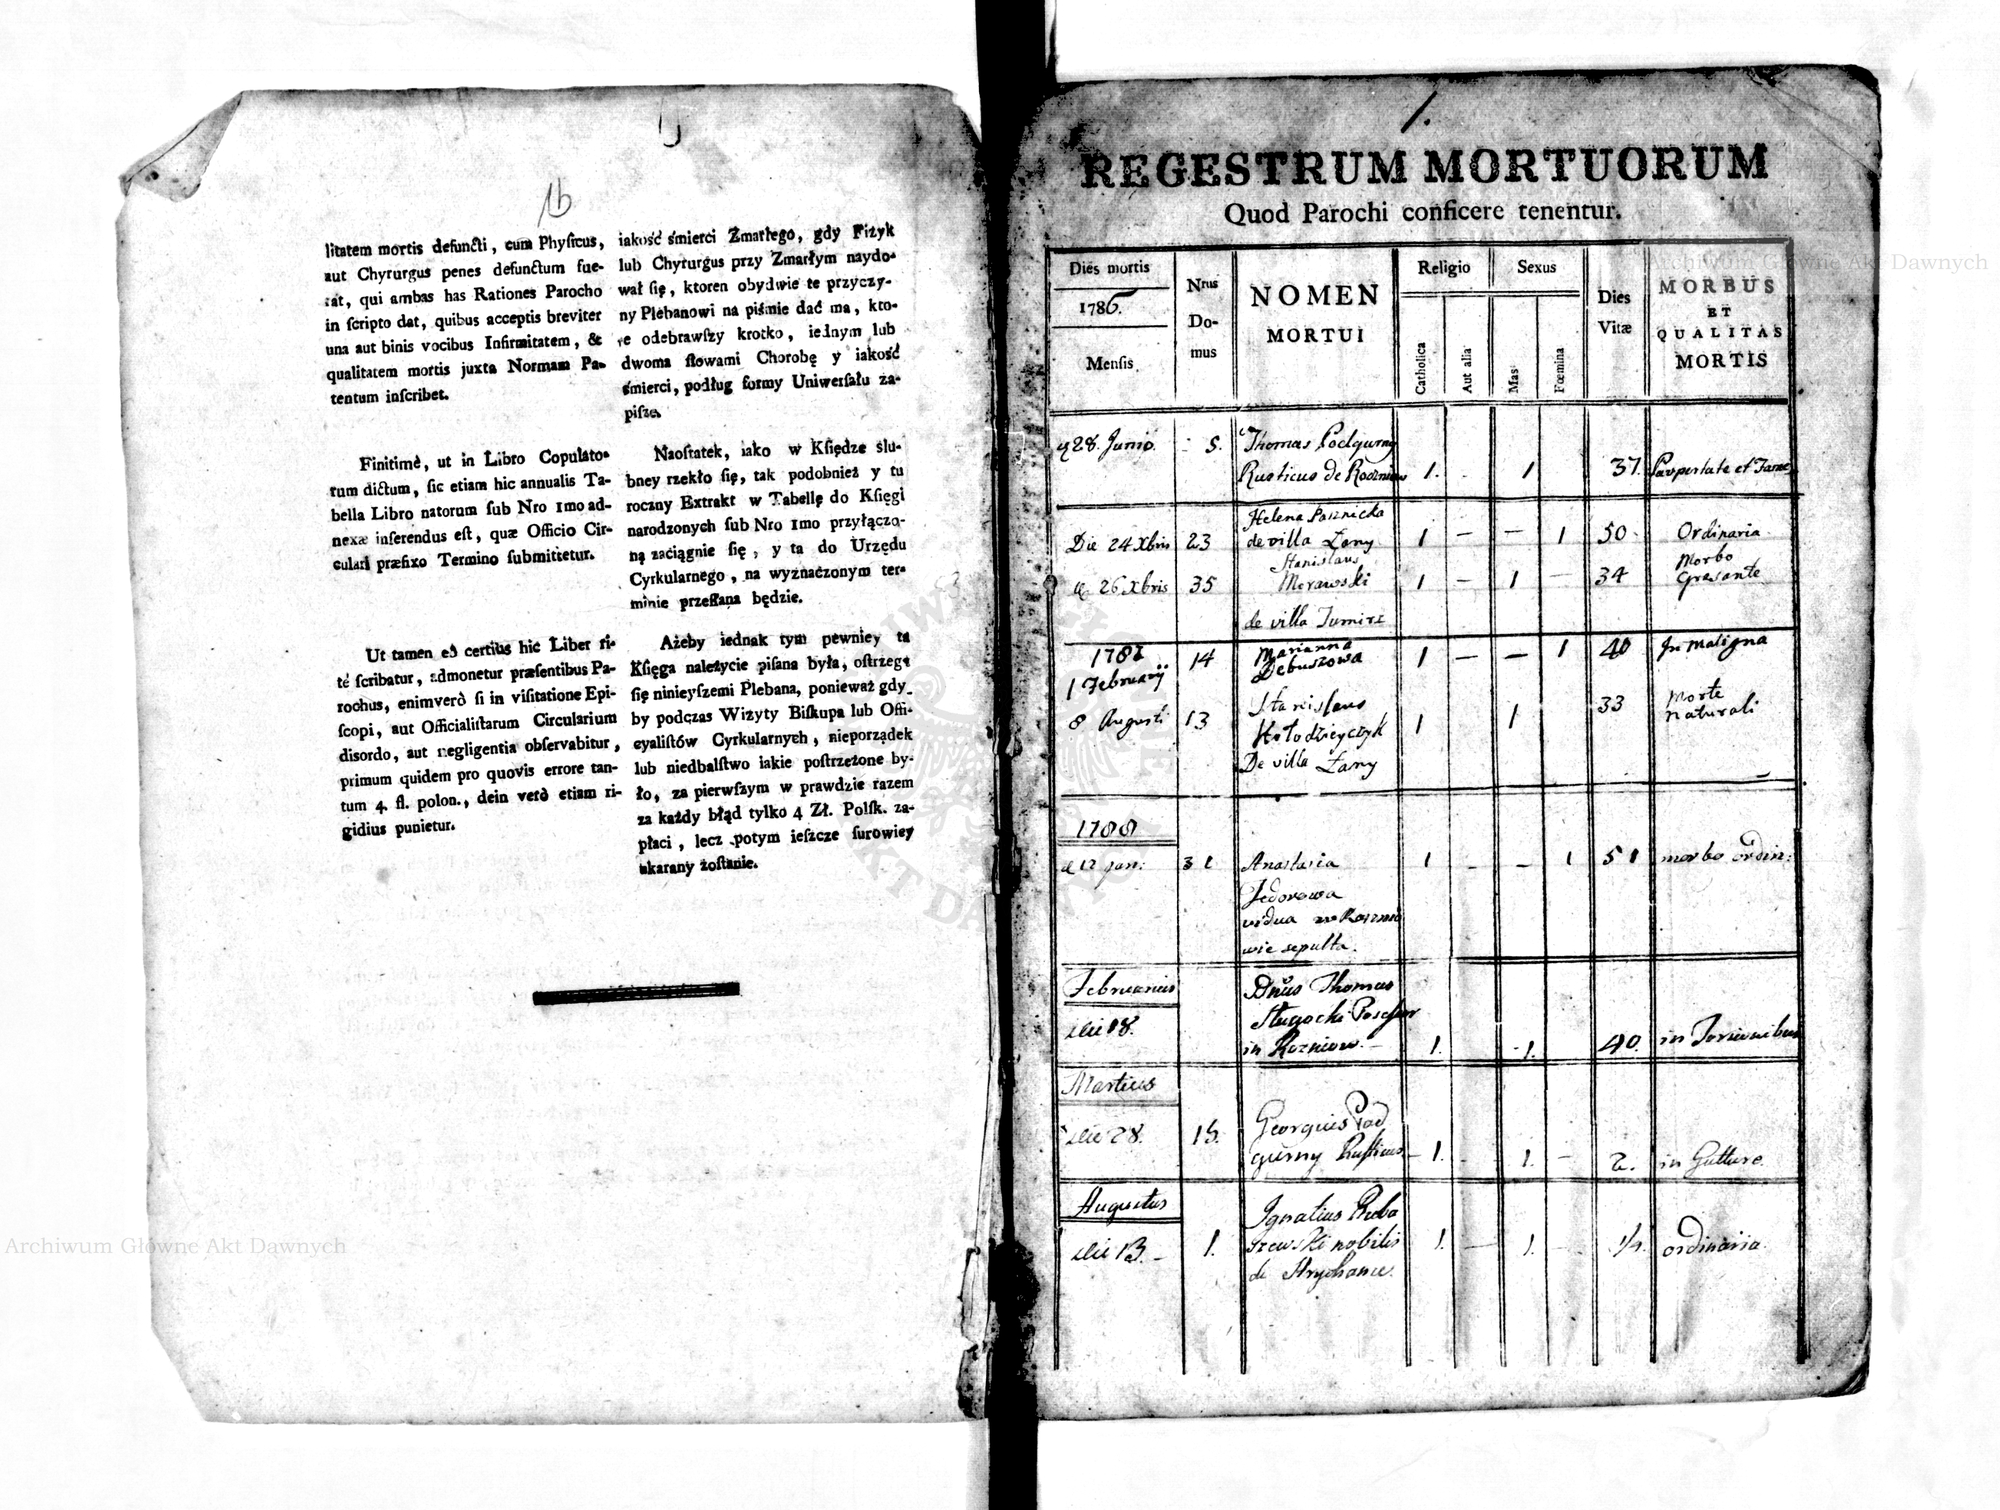 1b
litatem mortis defuncti, cum Phyſicus,
aut Chyrurgus penes defunctum fue-
rat, qui ambas has Rationes Parocho
in ſcripto dat, quibus acceptis breviter
una aut binis vocibus Infirmitatem, &
qualitatem mortis juxta Normam Pa-
tentum inſcribet.
Finitimè, ut in Libro Copulato-
rum dictum, ſic etiam hic annualis Ta-
bella Libro natorum ſub Nro 1mo ad-
nexæ inſerendus eſt, quæ Officio Cir-
culari præfixo Termino ſubmittetur.
Ut tamen eò certiùs hic Liber ri-
tè ſcribatur, admonetur præſentibus Pa-
rochus, enimverò ſi in viſitatione Epi-
ſcopi, aut Officialiſtarum Circularium
disordo, aut negligentia obſervabitur,
primum quidem pro quovis errore tan-
tum 4. fl. polon., dein verò etiam ri-
gidius punietur.
iakość śmierci Zmarłego, gdy Fizyk
lub Chyrurgus przy Zmarłym naydo-
wał ſię, ktoren obydwie te przyczy-
ny Plebanowi na piśmie dać ma, kto-
re odebrawſzy krotko, iednym lub
dwoma ſłowami Chorobę y iakość
śmierci, podług formy Uniwerſału za-
piſze.
Naoſtatek, iako w Kſiędze slu-
bney rzekło ſię, tak podobnież y tu
roczny Extrakt w Tabellę do Kſięgi
narodzonych ſub Nro 1mo przyłączo-
ną zaciągnie ſię, y ta do Urzędu
Cyrkularnego, na wyznaczonym ter-
minie przeſłana będzie.
Ażeby iednak tym pewniey ta
Kſięga należycie piſana była, oſtrzega
ſię ninieyſzemi Plebana, ponieważ gdy-
by podczas Wizyty Biſkupa lub Offi-
cyaliſtów Cyrkularnych, nieporządek
lub niedbalſtwo iakie poſtrzeżone by-
ło, za pierwſzym w prawdzie razem
za każdy błąd tylko 4 Zł. Polſk. za-
płaci, lecz potym ieſzcze ſurowiey
ukarany zoſtanie.
1.
REGESTRUM MORTUORUM
Quod Parochi conficere tenentur.
Dies mortis
1786.
Menſis
Nrus
Do-
mus
NOMEN
MORTUI
Religio
Catholica
Aut alia
Sexus
Mas
Fœmina
Dies
Vitæ
MORBUS
ET
QUALITAS
MORTIS
28. Junio. 5. Thomas Podgurny
Rusticus de 1. 1 37. Paupertate et Fame
Helena
Die 24 Xbris 23 de villa Łany 1 — — 1 50. Ordinaria
Stanislaus Morbo
26 Xbris 35 Morawski 1 — 1 — 34 Grasante
de villa
1787 14 Marianna 1 — — 1 40 In maligna
1 Februarij Debuszowa
8 Augusti 13 Stanislaus 1 1 33 Morte
naturali
De villa Łany
1788
12 Jan: 31 Anastasia 1 - - 1 51 morbo ordin:
Fedorowa
vidua
wie sepulta.
Februarius Dnus Thomas
die 18.
in Rozniow. 1. 1. 40. in
Martius
die 28. 15. Georgius Pod
gurny Rusticus 1. 1. 2. in Gutture.
Augustus Ignatius
die 13. 1. nobilis 1. — 1. — 1/4. ordinaria.
de
Archiwum Główne Akt Dawnych
Archiwum Główne Akt Dawnych